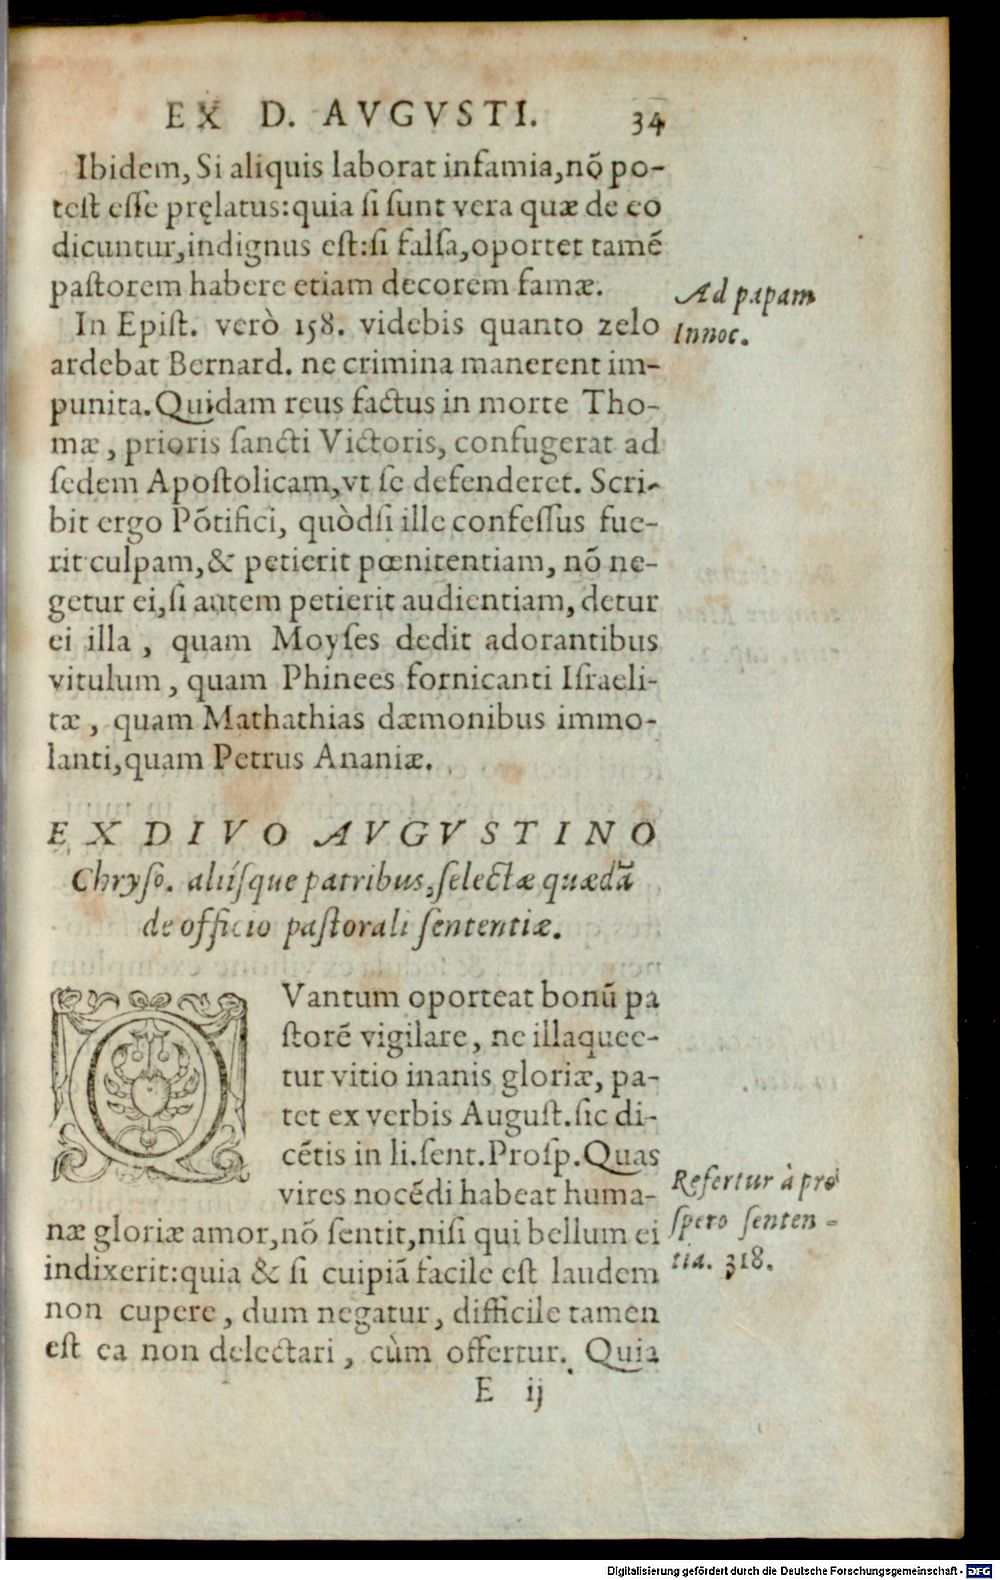 EX D. AVGVSTI. 34
Ibidem, Si aliquis laborat infamia, nõ po-
test esse pręlatus: quia si sunt vera quæ de eo
dicuntur, indignus est: si falsa, oportet tamẽ
pastorem habere etiam decorem famæ.
Ad papam
Innoc.
In Epist. verò 158. videbis quanto zelo
ardebat Bernard. ne crimina manerent im-
punita. Quidam reus factus in morte Tho-
mæ, prioris sancti Victoris, confugerat ad
sedem Apostolicam, vt se defenderet. Scri-
bit ergo Põtifici, quòd si ille confessus fue-
rit culpam, & petierit pœnitentiam, nõ ne-
getur ei, si autem petierit audientiam, detur
ei illa, quam Moyses dedit adorantibus
vitulum, quam Phinees fornicanti Israeli-
tæ, quam Mathathias dæmonibus immo-
lanti, quam Petrus Ananiæ.
EX DIVO AVGVSTINO
Chryso. aliísque patribus, selectæ quædã
de officio pastorali sententiæ.
QVantum oporteat bonũ pa
storẽ vigilare, ne illaquee-
tur vitio inanis gloriæ, pa-
tet ex verbis August. sic di-
cẽtis in li. sent. Prosp. Quas
vires nocẽdi habeat huma-
næ gloriæ amor, nõ sentit, nisi qui bellum ei
indixerit: quia & si cuipiã facile est laudem
non cupere, dum negatur, difficile tamen
est ea non delectari, cùm offertur. Quia
Refertur à pro
spero senten-
tia. 318.
E ij
Digitalisierung gefördert durch die Deutsche Forschungsgemeinschaft - DFG